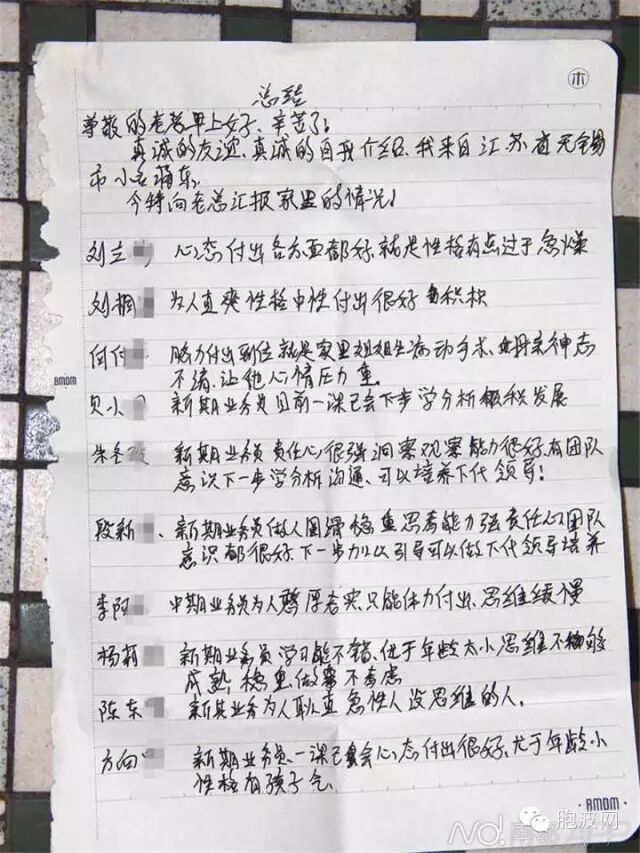 木
总结
尊敬的老总早上好、辛苦了!
真诚的友谊、真诚的自我介绍、我来自江苏省无锡
市小
今特向老总汇报家里的情况!
刘立 心态付出各方面都好、就是性格有点过于急燥
刘桐 为人直爽性格中性付出很好 积极
何付 脑力付出到位就是家里姐姐生病动手术、母亲神志
不清、让他心情压力重
贝小 新期业务员目前一课已会下步学分析积极发展
朱冬 新期业务员责任心很强洞察观察能力很好、有团队
意识下一步学分析沟通、可以培养下代领导!
段新 、新期业务员做人圆滑稳重思考能力强责任心团队
意识都很好、下一步加以引导可以做下代领导培养
李阿 中期业务员为人憨厚老实、只能体力付出、思维缓慢
杨莉 新期业务员学习能不错、优于年龄太小思维不够
成熟、稳重、做事不考虑
陈东 新期业务为人耿直急性人没思维的人、
方向 新期业务员、一课已会心态付出很好、尤于年龄小
性格有孩子气、
BMDM
BMDM
胞波网
No. 南都APP